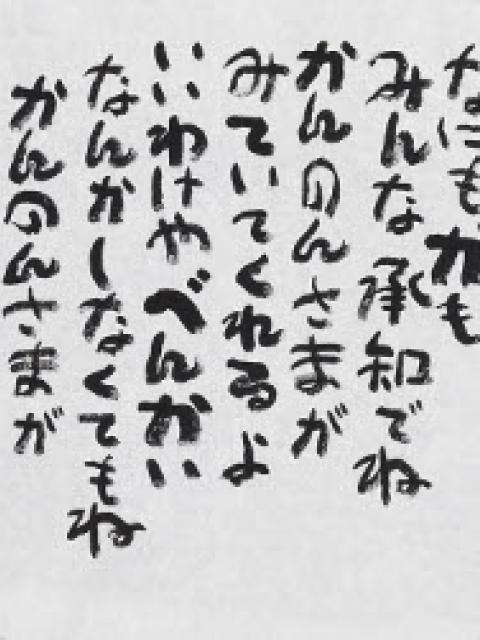 なにもかも
みんな承知でね
かんのんさまが
みていてくれるよ
いいわけやべんかい
なんかしなくてもね
かんのんさまが